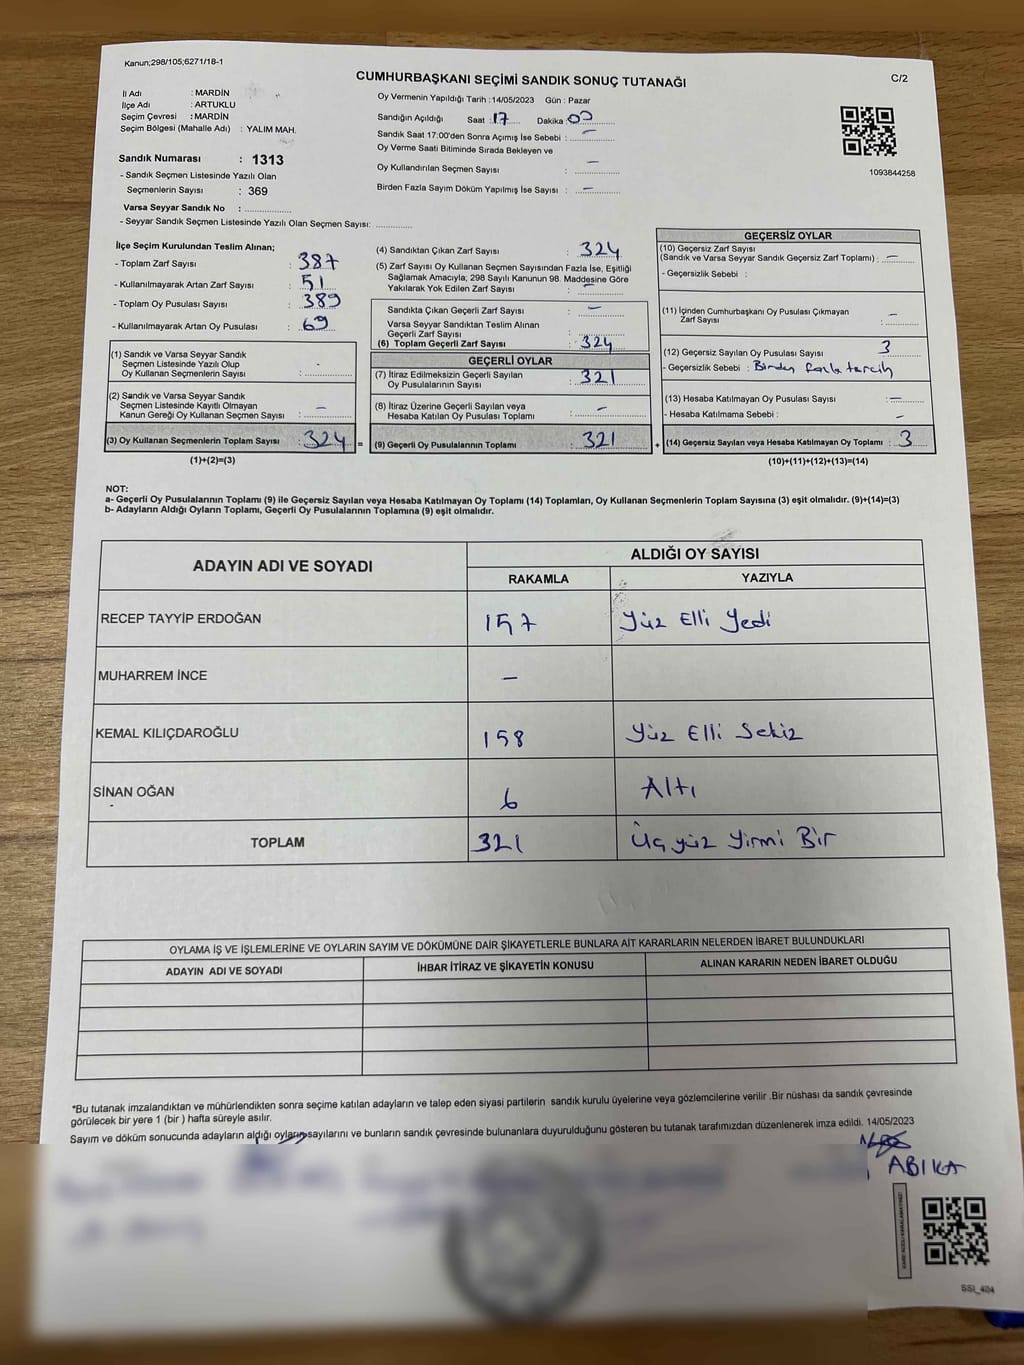 Kanun;298/105;6271/18-1
CUMHURBAŞKANI SEÇİMİ SANDIK SONUÇ TUTANAĞI
C/2
İl Adı : MARDİN
İlçe Adı : ARTUKLU
Seçim Çevresi : MARDİN
Seçim Bölgesi (Mahalle Adı) : YALIM MAH.
Sandık Numarası : 1313
- Sandık Seçmen Listesinde Yazılı Olan
Seçmenlerin Sayısı : 369
Varsa Seyyar Sandık No : ................
- Seyyar Sandık Seçmen Listesinde Yazılı Olan Seçmen Sayısı: .............
Oy Vermenin Yapıldığı Tarih :14/05/2023 Gün : Pazar
Sandığın Açıldığı Saat :17 Dakika :
Sandık Saat 17:00'den Sonra Açımış İse Sebebi : –
Oy Verme Saati Bitiminde Sırada Bekleyen ve
Oy Kullandırılan Seçmen Sayısı : –
Birden Fazla Sayım Döküm Yapılmış İse Sayısı : –
1093844258
İlçe Seçim Kurulundan Teslim Alınan;
- Toplam Zarf Sayısı : 387
- Kullanılmayarak Artan Zarf Sayısı : 51
- Toplam Oy Pusulası Sayısı : 389
- Kullanılmayarak Artan Oy Pusulası : 69
(1) Sandık ve Varsa Seyyar Sandık
Seçmen Listesinde Yazılı Olup
Oy Kullanan Seçmenlerin Sayısı : -
(2) Sandık ve Varsa Seyyar Sandık
Seçmen Listesinde Kayıtlı Olmayan
Kanun Gereği Oy Kullanan Seçmen Sayısı : –
(3) Oy Kullanan Seçmenlerin Toplam Sayısı : 324 =
(1)+(2)=(3)
(4) Sandıktan Çıkan Zarf Sayısı : 324
(5) Zarf Sayısı Oy Kullanan Seçmen Sayısından Fazla İse, Eşitliği
Sağlamak Amacıyla; 298 Sayılı Kanunun 98. Maddesine Göre
Yakılarak Yok Edilen Zarf Sayısı : –
Sandıkta Çıkan Geçerli Zarf Sayısı : –
Varsa Seyyar Sandıktan Teslim Alınan
Geçerli Zarf Sayısı
(6) Toplam Geçerli Zarf Sayısı : 324
GEÇERLİ OYLAR
(7) İtiraz Edilmeksizin Geçerli Sayılan
Oy Pusulalarının Sayısı : 321
(8) İtiraz Üzerine Geçerli Sayılan veya
Hesaba Katılan Oy Pusulası Toplamı : –
(9) Geçerli Oy Pusulalarının Toplamı : 321 +
GEÇERSİZ OYLAR
(10) Geçersiz Zarf Sayısı
(Sandık ve Varsa Seyyar Sandık Geçersiz Zarf Toplamı) : –
- Geçersizlik Sebebi :
(11) İçinden Cumhurbaşkanı Oy Pusulası Çıkmayan
Zarf Sayısı : –
(12) Geçersiz Sayılan Oy Pusulası Sayısı : 3
- Geçersizlik Sebebi : Birden fazla tercih
(13) Hesaba Katılmayan Oy Pusulası Sayısı : –
- Hesaba Katılmama Sebebi : –
(14) Geçersiz Sayılan veya Hesaba Katılmayan Oy Toplamı : 3
(10)+(11)+(12)+(13)=(14)
NOT:
a- Geçerli Oy Pusulalarının Toplamı (9) ile Geçersiz Sayılan veya Hesaba Katılmayan Oy Toplamı (14) Toplamları, Oy Kullanan Seçmenlerin Toplam Sayısına (3) eşit olmalıdır. (9)+(14)=(3)
b- Adayların Aldığı Oyların Toplamı, Geçerli Oy Pusulalarının Toplamına (9) eşit olmalıdır.
ADAYIN ADI VE SOYADI ALDIĞI OY SAYISI
RAKAMLA YAZIYLA
RECEP TAYYİP ERDOĞAN 157 Yüz Elli Yedi
MUHARREM İNCE –
KEMAL KILIÇDAROĞLU 158 Yüz Elli Sekiz
SİNAN OĞAN 6 Altı
TOPLAM 321 Üçyüz Yirmi Bir
OYLAMA İŞ VE İŞLEMLERİNE VE OYLARIN SAYIM VE DÖKÜMÜNE DAİR ŞİKAYETLERLE BUNLARA AİT KARARLARIN NELERDEN İBARET BULUNDUKLARI
ADAYIN ADI VE SOYADI İHBAR İTİRAZ VE ŞİKAYETİN KONUSU ALINAN KARARIN NEDEN İBARET OLDUĞU
*Bu tutanak imzalandıktan ve mühürlendikten sonra seçime katılan adayların ve talep eden siyasi partilerin sandık kurulu üyelerine veya gözlemcilerine verilir .Bir nüshası da sandık çevresinde
görülecek bir yere 1 (bir ) hafta süreyle asılır.
Sayım ve döküm sonucunda adayların aldığı oyların sayılarını ve bunların sandık çevresinde bulunanlara duyurulduğunu gösteren bu tutanak tarafımızdan düzenlenerek imza edildi. 14/05/2023
ABIKA